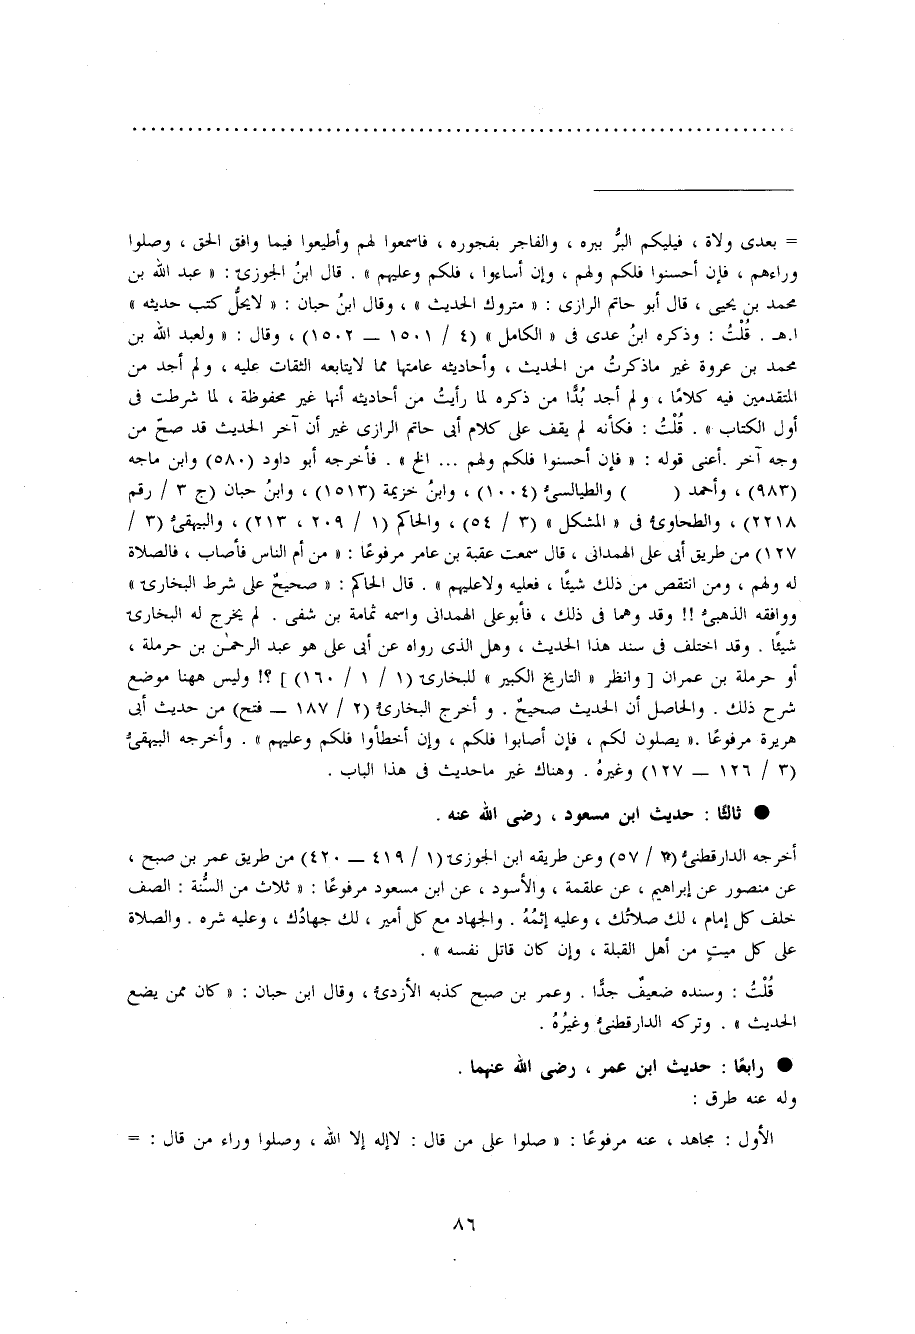 = بعدى ولاة ، فيليكم البرُّ ببره ، والفاجر بفجوره ، فاسمعوا لهم وأطيعوا فيما وافق الحق ، وصلوا
وراءهم ، فإن أحسنوا فلكم ولهم ، وإن أساءوا ، فلكم وعليهم » . قال ابنُ الجوزىّ : « عبد الله بن
محمد بن يحيى ، قال أبو حاتم الرازى : « متروك الحديث » ، وقال ابنُ حبان : « لايحلُّ كتب حديثه »
ا.هـ . قُلْتُ : وذكره ابنُ عدى فى « الكامل » (٤ / ١٥٠١ — ١٥٠٢) ، وقال : « ولعبد الله بن
محمد بن عروة غير ماذكرتُ من الحديث ، وأحاديثه عامتها مما لايتابعه الثقات عليه ، ولم أجد من
المتقدمين فيه كلامًا ، ولم أجد بُدًّا من ذكره لما رأيتُ من أحاديثه أنها غير محفوظة ، لما شرطت فى
أول الكتاب » . قُلْتُ : فكأنه لم يقف على كلام أبى حاتم الرازى غير أن آخر الحديث قد صحّ من
وجه آخر .أعنى قوله : « فإن أحسنوا فلكم ولهم ... الخ » . فأخرجه أبو داود (٥٨٠) وابن ماجه
(٩٨٣) ، وأحمد ( ) والطيالسىُّ (١٠٠٤) ، وابنُ خزيمة (١٥١٣) ، وابنُ حبان (ج ٣ / رقم
٢٢١٨) ، والطحاوىُّ فى « المشكل » (٣ / ٥٤) ، والحاكم (١ / ٢٠٩ ، ٢١٣) ، والبيهقىُّ (٣ /
١٢٧) من طريق أبى على الهمدانى ، قال سمعت عقبة بن عامر مرفوعًا : « من أم الناس فأصاب ، فالصلاة
له ولهم ، ومن انتقص من ذلك شيئًا ، فعليه ولاعليهم » . قال الحاكم : « صحيحٌ على شرط البخارىّ »
ووافقه الذهبىُّ !! وقد وهما فى ذلك ، فأبوعلى الهمدانى واسمه ثمامة بن شفى . لم يخرج له البخارىّ
شيئًا . وقد اختلف فى سند هذا الحديث ، وهل الذى رواه عن أبى على هو عبد الرحمٰن بن حرملة ،
أو حرملة بن عمران [ وانظر « التاريخ الكبير » للبخارىّ (١ / ١ / ١٦٠) ] ؟! وليس ههنا موضع
شرح ذلك . والحاصل أن الحديث صحيحٌ . و أخرج البخارىُّ (٢ / ١٨٧ — فتح) من حديث أبى
هريرة مرفوعًا .« يصلون لكم ، فإن أصابوا فلكم ، وإن أخطأوا فلكم وعليهم » . وأخرجه البيهقىُّ
(٣ / ١٢٦ — ١٢٧) وغيرهُ . وهناك غير ماحديث فى هذا الباب .
● ثالثا : حديث ابن مسعود ، رضى الله عنه .
أخرجه الدارقطنىُّ ( / ٥٧) وعن طريقه ابن الجوزىّ (١ / ٤١٩ — ٤٢٠) من طريق عمر بن صبح ،
عن منصور عن إبراهيم ، عن علقمة ، والأسود ، عن ابن مسعود مرفوعًا : « ثلاث من السُّنة : الصف
خلف كل إمام ، لك صلاتُك ، وعليه إثمُهُ . والجهاد مع كل أمير ، لك جهادُك ، وعليه شره . والصلاة
على كل ميتٍ من أهل القبلة ، وإن كان قاتل نفسه » .
قُلْتُ : وسنده ضعيفٌ جدًّا . وعمر بن صبح كذبه الأزدىُّ ، وقال ابن حبان : « كان ممن يضع
الحديث » . وتركه الدارقطنىُّ وغيرُهُ .
● رابعًا : حديث ابن عمر ، رضى الله عنهما .
وله عنه طرق :
الأول : مجاهد ، عنه مرفوعًا : « صلوا على من قال : لاإله إلا الله ، وصلوا وراء من قال : =
٨٦